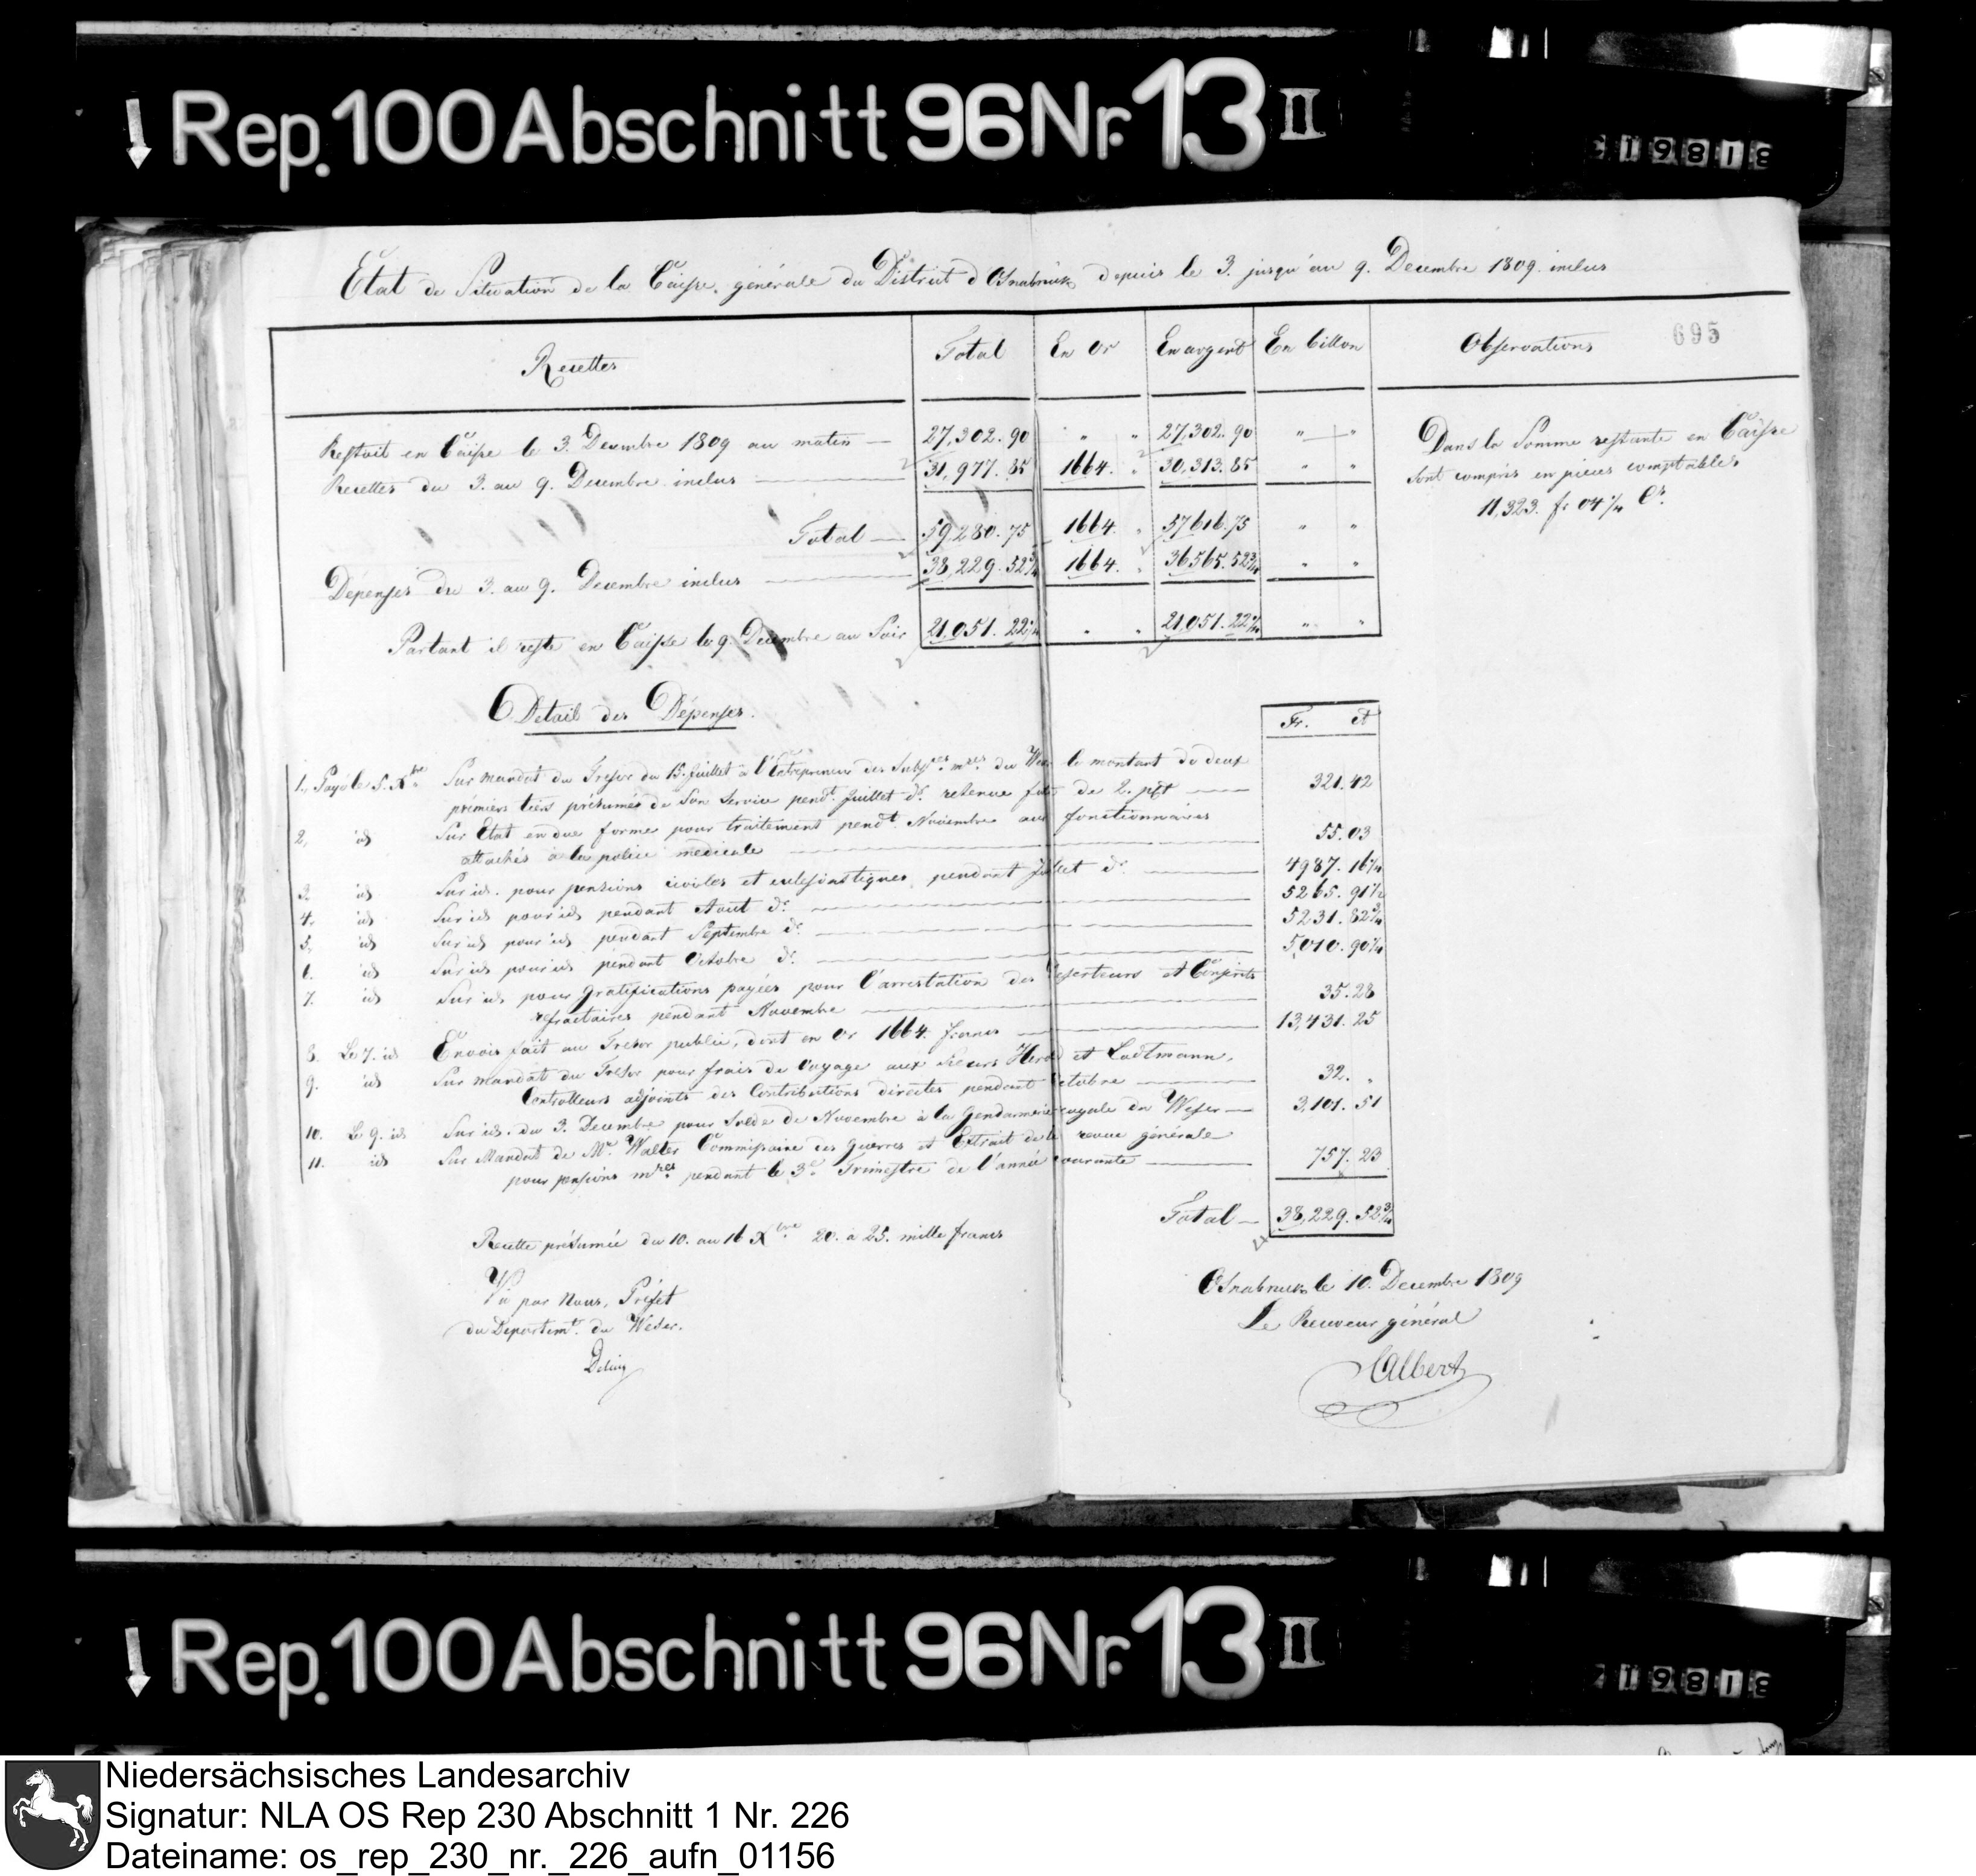 Rep. 100 Abschnitt 96 Nr. 13 II
19818
Etat de Situation de la Caisse générale du District d'Osnabrück depuis le 3. jusqu'au 9. Decembre 1809. inclus
695
Recettes Total En Or En argent En billon Observations
Restoit en Caisse le 3. Decembre 1809 au matin — 27,302. 90 " " 27,302. 90 " "
Recettes du 3. au 9. Decembre inclus — 31,977. 85 1664. " 30,313. 85 " "
Total — 59,280. 75 1664. " 57616. 75 " "
Dépenses du 3. au 9. Decembre inclus — 38,229. 52¾ 1664. " 36,565. 52¾ " "
Partant il reste en Caisse le 9. Decembre au Soir 21,051. 22¼ " " 21,051. 22¼ " "
Dans la Somme restante en Caisse
sont compris en pieces comptables
11,323. fr 04¼ Cs.
Detail des Dépenses.
Fr. Ct
1. Payé le 5. Xbre Sur mandat du Tresor du 15. Juillet à l'Entrepreneur des Subces mres du Weser le montant de deux
prémiers tiers présumés de Son Service pendt Juillet dr. retenue faite de 2. pCt — 321. 42
2. id Sur Etat en due forme pour traitement pendt Novembre aux fonctionnaires
attachés à la police medicale — 55. 03
3. id Sur id. pour pensions civiles et eclesiastiques, pendant Juillet dr. — 4987. 16¼
4. id Sur id pour id pendant Aout dr. — 5265. 91½
5. id Sur id pour id pendant Septembre dr. — 5231. 82¾
6. id Sur id pour id pendant Octobre dr. — 5,010. 90¼
7. id Sur id pour gratifications payées pour l'arrestation des Deserteurs et Conscrits
refractaires pendant Novembre — 35. 28
8. Le 7. id Envois fait au Tresor public, dont en Or 1664. francs — 13,431. 25
9. id Sur mandat du Tresor pour frais de Voyage aux Sieurs Herd et Lodtmann,
Controlleurs adjoints des Contributions directes pendant Octobre — 32. "
10. Le 9. id Sur id. du 3. Decembre pour Solde de Novembre à la Gendarmerie royale du Weser — 3,101. 51
11. id Sur Mandat de Mr. Walter Commissaire des guerres et Extrait de la revue générale
pour pensions mres pendant le 3e Trimestre de l'année courante — 757. 23
Total — 38,229. 52¾
Recette présumée du 10. au 16 Xbre 20. à 25. mille francs
Vu par Nous, Préfet
du Departemt. du Weser.
Osnabruck le 10. Decembre 1809
Le Receveur général
Albert
Rep. 100 Abschnitt 96 Nr. 13 II
19818
Niedersächsisches Landesarchiv
Signatur: NLA OS Rep 230 Abschnitt 1 Nr. 226
Dateiname: os_rep_230_nr._226_aufn_01156